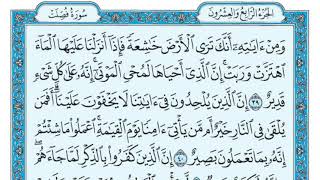 الجزء الرابع والعشرون سورة فصلت
وَمِنْ ءَايَٰتِهِۦٓ أَنَّكَ تَرَى ٱلْأَرْضَ خَٰشِعَةً فَإِذَآ أَنزَلْنَا عَلَيْهَا ٱلْمَآءَ
ٱهْتَزَّتْ وَرَبَتْ ۚ إِنَّ ٱلَّذِىٓ أَحْيَاهَا لَمُحْىِ ٱلْمَوْتَىٰٓ ۚ إِنَّهُۥ عَلَىٰ كُلِّ شَىْءٍ
قَدِيرٌ ٣٩ إِنَّ ٱلَّذِينَ يُلْحِدُونَ فِىٓ ءَايَٰتِنَا لَا يَخْفَوْنَ عَلَيْنَآ ۗ أَفَمَن
يُلْقَىٰ فِى ٱلنَّارِ خَيْرٌ أَم مَّن يَأْتِىٓ ءَامِنًا يَوْمَ ٱلْقِيَٰمَةِ ۚ ٱعْمَلُوا۟ مَا شِئْتُمْ ۖ
إِنَّهُۥ بِمَا تَعْمَلُونَ بَصِيرٌ ٤٠ إِنَّ ٱلَّذِينَ كَفَرُوا۟ بِٱلذِّكْرِ لَمَّا جَآءَهُمْ ۖ